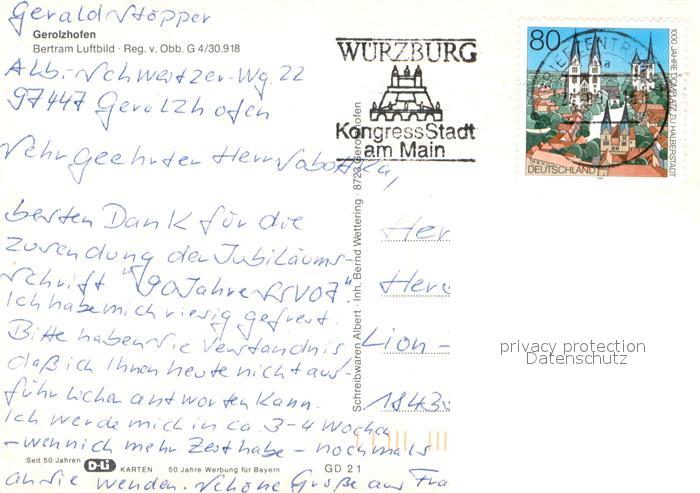 Gerald Stöpper
Gerolzhofen
Bertram Luftbild · Reg. v. Obb. G 4/30.918
Alb.-Schweitzer-Wg. 22
97447 Gerolzhofen
Sehr Geehrter Herr Sabottka,
besten Dank für die
Zusendung der Jubiläums-
schrift "90 Jahre SSV07".
Ich habe mich riesig gefreut.
Bitte haben Sie Verständnis
daß ich Ihnen heute nicht aus-
führlicher antworten kann.
Ich werde mich in ca. 3-4 Wochen
- wenn ich mehr Zeit habe - nochmals
an Sie wenden. Schöne Grüße aus Fra
Seit 50 Jahren D-Li KARTEN 50 Jahre Werbung für Bayern GD 21
Schreibwaren Albert · Inh. Bernd Wettering · 8723 Gerolzhofen
WÜRZBURG
KongressStadt
am Main
80
1000 JAHRE DOMPLATZ ZU HALBERSTADT
DEUTSCHLAND
BRIEFZENTRUM
Her
Her
Lion-
1843
privacy protection
Datenschutz